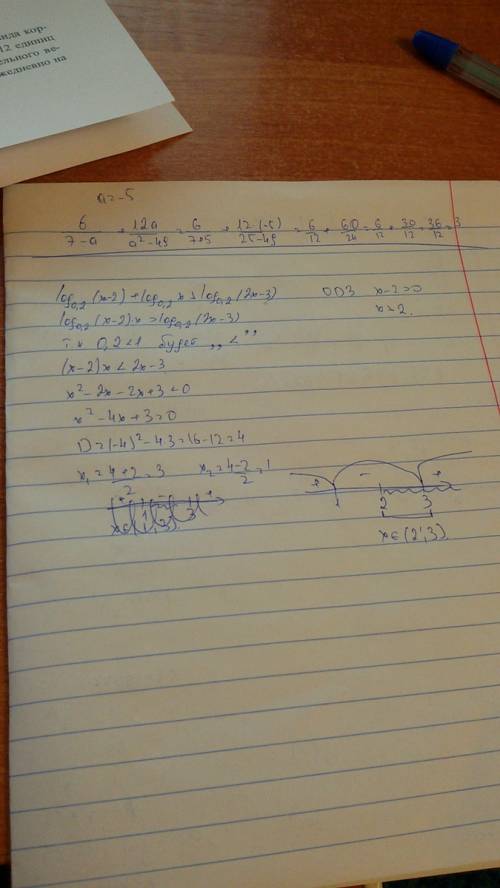 ида кор-
12 единиц
ельного ве-
жедневно на
a=-5
6/(7-a) + 12a/(a²-49) = 6/(7+5) + 12·(-5)/(25-49) = 6/12 + 60/24 = 6/12 + 30/12 = 36/12 = 3
log₀,₂(x-2)+log₀,₂x > log₀,₂(2x-3)
ОДЗ x-2>0
x>2.
log₀,₂(x-2)·x > log₀,₂(2x-3)
т.к 0,2<1 будет „<“
(x-2)x < 2x-3
x²-2x-2x+3<0
x²-4x+3=0
D=(-4)²-4·3=16-12=4
x₁=(4+2)/2=3 x₂=(4-2)/2=1
+ - +
1 2 3
x∈(2;3)